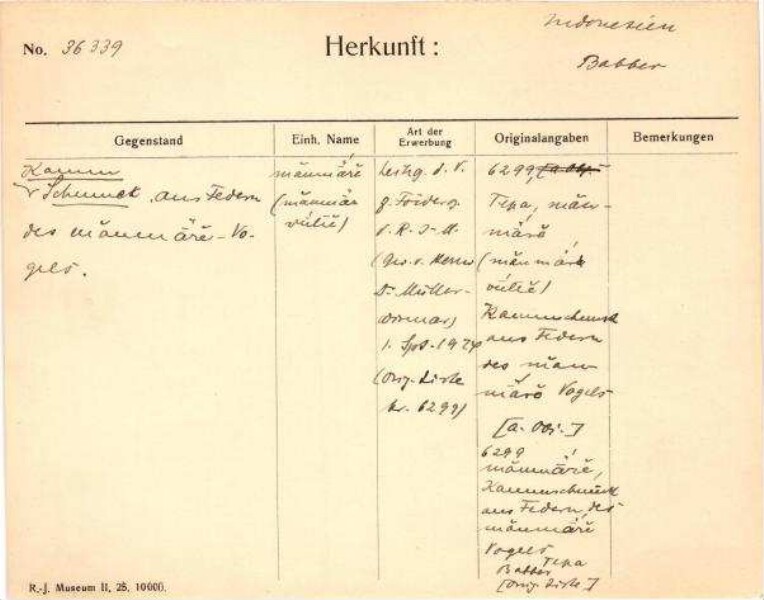 Indonesien
No. 36339 Herkunft:
Babber
Gegenstand Einh. Name Art der Erwerbung Originalangaben Bemerkungen
Kamm
Schmuck aus Federn
des männärě-Vo-
gels.
männärě
(männär
vúlié)
Leihg. d. V.
z. Förderg.
d. R-J-M.
(Ges. v. Herrn
Dr Müller-
Wismar)
1. Spt. 1924
(Orig. Liste
Nr. 6299)
6299, [a. Obj.
Tepa, män-
märŏ
(män märŏ
vúlié)
Kammschmuck
aus Federn
des män
märŏ Vogels
[a. Obj.]
6299
männärě,
Kammschmuck
aus Federn des
männärě
Vogels
Tepa
Babber
[Orig. Liste]
R.-J. Museum II, 25, 10000.